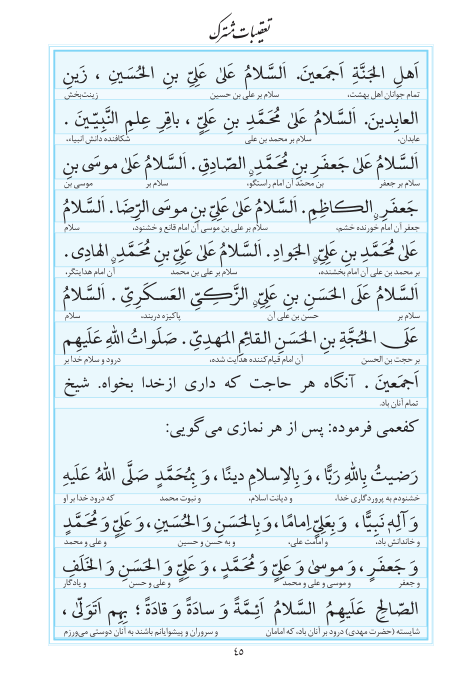 تعقیبات مشترک
اَهلِ الجَنَّةِ اَجمَعینَ. اَلسَّلامُ عَلیٰ عَلِیِّ بنِ الحُسَینِ ، زَینِ
تمام جوانان اهل بهشت، سلام بر علی بن حسین زینت‌بخش
العابِدینَ. اَلسَّلامُ عَلیٰ مُحَمَّدِ بنِ عَلِیٍّ ، باقِرِ عِلمِ النَّبِیّینَ .
عابدان، سلام بر محمد بن علی شکافنده دانش انبیاء،
اَلسَّلامُ عَلیٰ جَعفَرِ بنِ مُحَمَّدٍ الصّادِقِ. اَلسَّلامُ عَلیٰ موسَی بنِ
سلام بر جعفر بن محمد آن امام راستگو، سلام بر موسی بن
جَعفَرٍ الکاظِمِ. اَلسَّلامُ عَلیٰ عَلِیِّ بنِ موسَی الرِّضا. اَلسَّلامُ
جعفر آن امام خورنده خشم، سلام بر علی بن موسی آن امام قانع و خشنود، سلام
عَلیٰ مُحَمَّدِ بنِ عَلِیٍّ الجَوادِ. اَلسَّلامُ عَلیٰ عَلِیِّ بنِ مُحَمَّدٍ الهادی.
بر محمد بن علی آن امام بخشنده، سلام بر علی بن محمد آن امام هدایتگر،
اَلسَّلامُ عَلَی الحَسَنِ بنِ عَلِیٍّ الزَّکِیِّ العَسکَرِیِّ . اَلسَّلامُ
سلام بر حسن بن علی آن پاکیزه دربند، سلام
عَلَی الحُجَّةِ بنِ الحَسَنِ القائِمِ المَهدِیِّ. صَلَواتُ اللهِ عَلَیهِم
بر حجت بن الحسن آن امام قیام‌کننده هدایت شده، درود و سلام خدا بر
اَجمَعینَ . آنگاه هر حاجت که داری ازخدا بخواه. شیخ
تمام آنان باد.
کفعمی فرموده: پس از هر نمازی می‌گویی:
رَضیتُ بِاللهِ رَبًّا ، وَ بِالاِسلامِ دینًا ، وَ بِمُحَمَّدٍ صَلَّی اللهُ عَلَیهِ
خشنودم به پروردگاری خدا، و دیانت اسلام، و نبوت محمد که درود خدا بر او
وَ آلِهٖ نَبِیًّا، وَ بِعَلِیٍّ اِمامًا، وَ بِالحَسَنِ وَ الحُسَینِ، وَ عَلِیٍّ وَ مُحَمَّدٍ
و خاندانش باد، و امامت علی، و به حسن و حسین و علی و محمد
وَ جَعفَرٍ ، وَ موسیٰ وَ عَلِیٍّ وَ مُحَمَّدٍ ، وَ عَلِیٍّ وَ الحَسَنِ وَ الخَلَفِ
و جعفر و موسی و علی و محمد و علی و حسن و یادگار
الصّالِحِ عَلَیهِمُ السَّلامُ اَئِمَّةً وَ سادَةً وَ قادَةً ؛ بِهِم اَتَوَلّیٰ ،
شایسته (حضرت مهدی) درود بر آنان باد، که امامان و سروران و پیشوایانم باشند به آنان دوستی می‌ورزم
٤٥